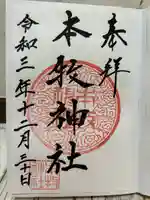 奉拝
本牧神社
令和三年十二月三十日